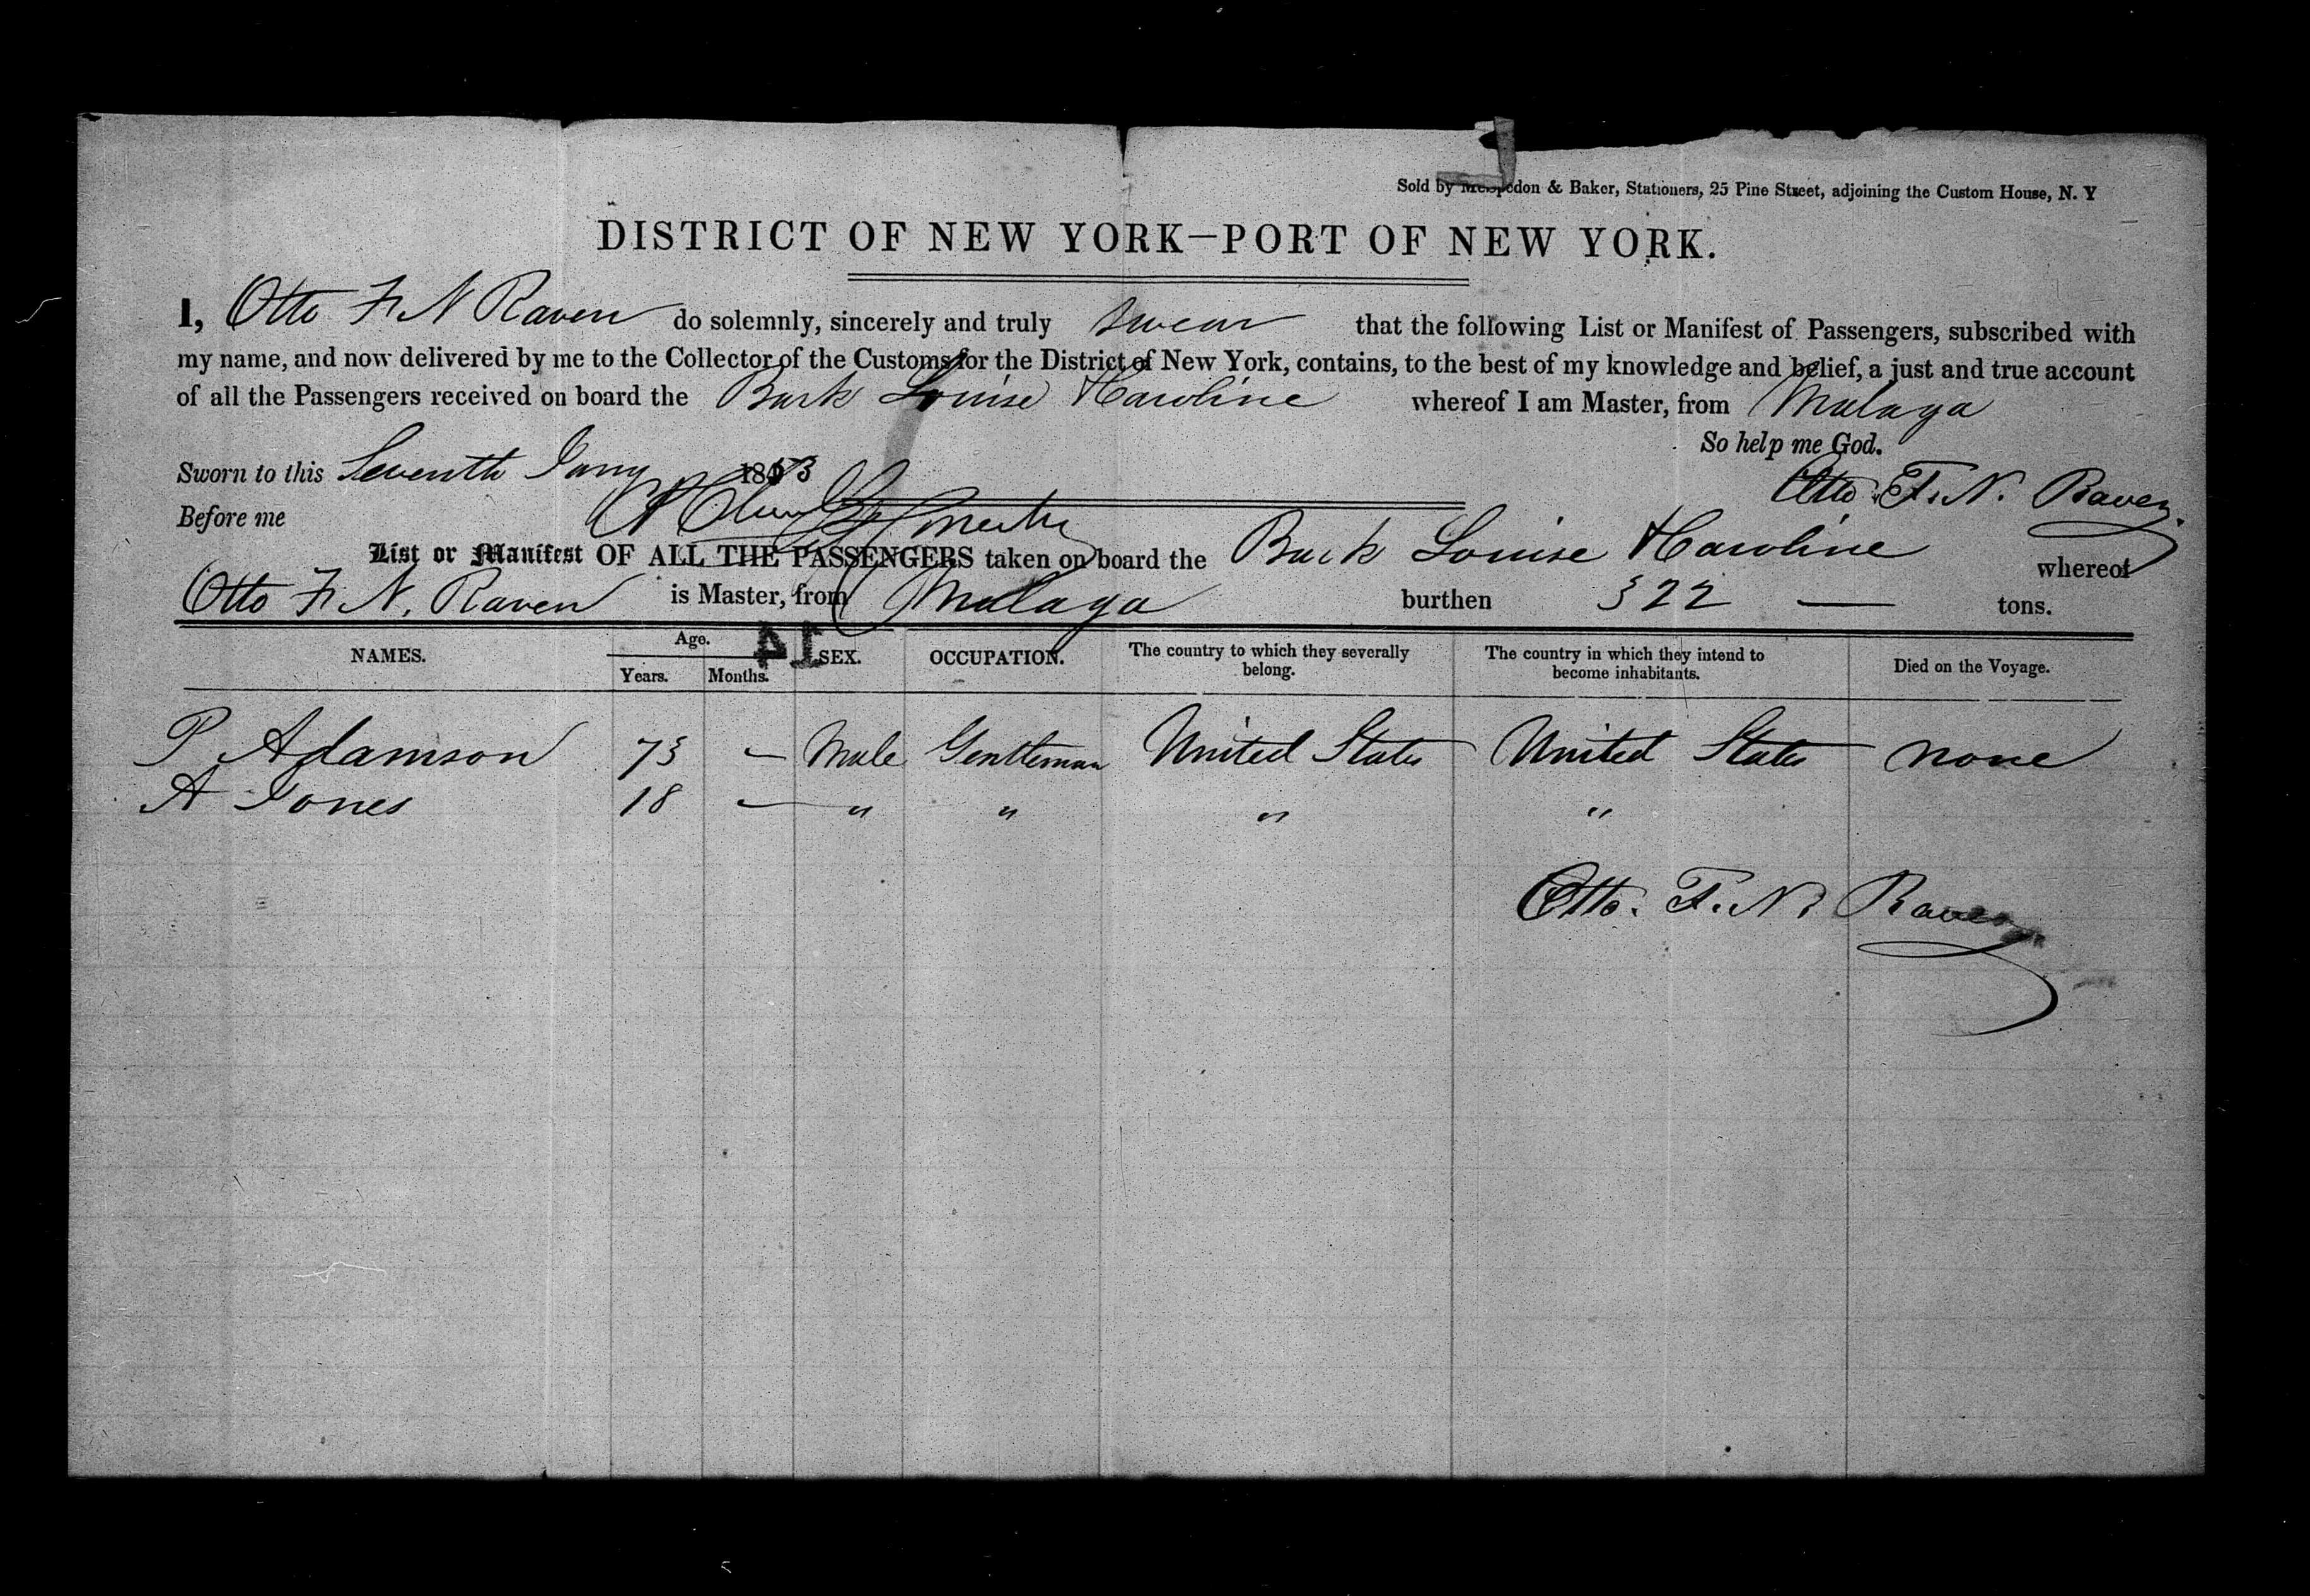 Sold by McSpedon & Baker, Stationers, 25 Pine Street, adjoining the Custom House, N. Y
DISTRICT OF NEW YORK—PORT OF NEW YORK.
I, Otto F. N Raven do solemnly, sincerely and truly swear that the following List or Manifest of Passengers, subscribed with
my name, and now delivered by me to the Collector of the Customs for the District of New York, contains, to the best of my knowledge and belief, a just and true account
of all the Passengers received on board the Bark Louise Karoline whereof I am Master, from Malaga
So help me God.
Sworn to this Seventh Jany 1853
Otto F. N. Raven
Before me
List or Manifest OF ALL THE PASSENGERS taken on board the Bark Louise Karoline whereof
Otto F. N. Raven is Master, from Malaga burthen 322 — tons.
14
NAMES. Age. Years. Months. SEX. OCCUPATION. The country to which they severally belong. The country in which they intend to become inhabitants. Died on the Voyage.
P Adamson 73 — Male Gentleman United States United States none
A Jones 18 — " " " "
Otto. F. N. Raven